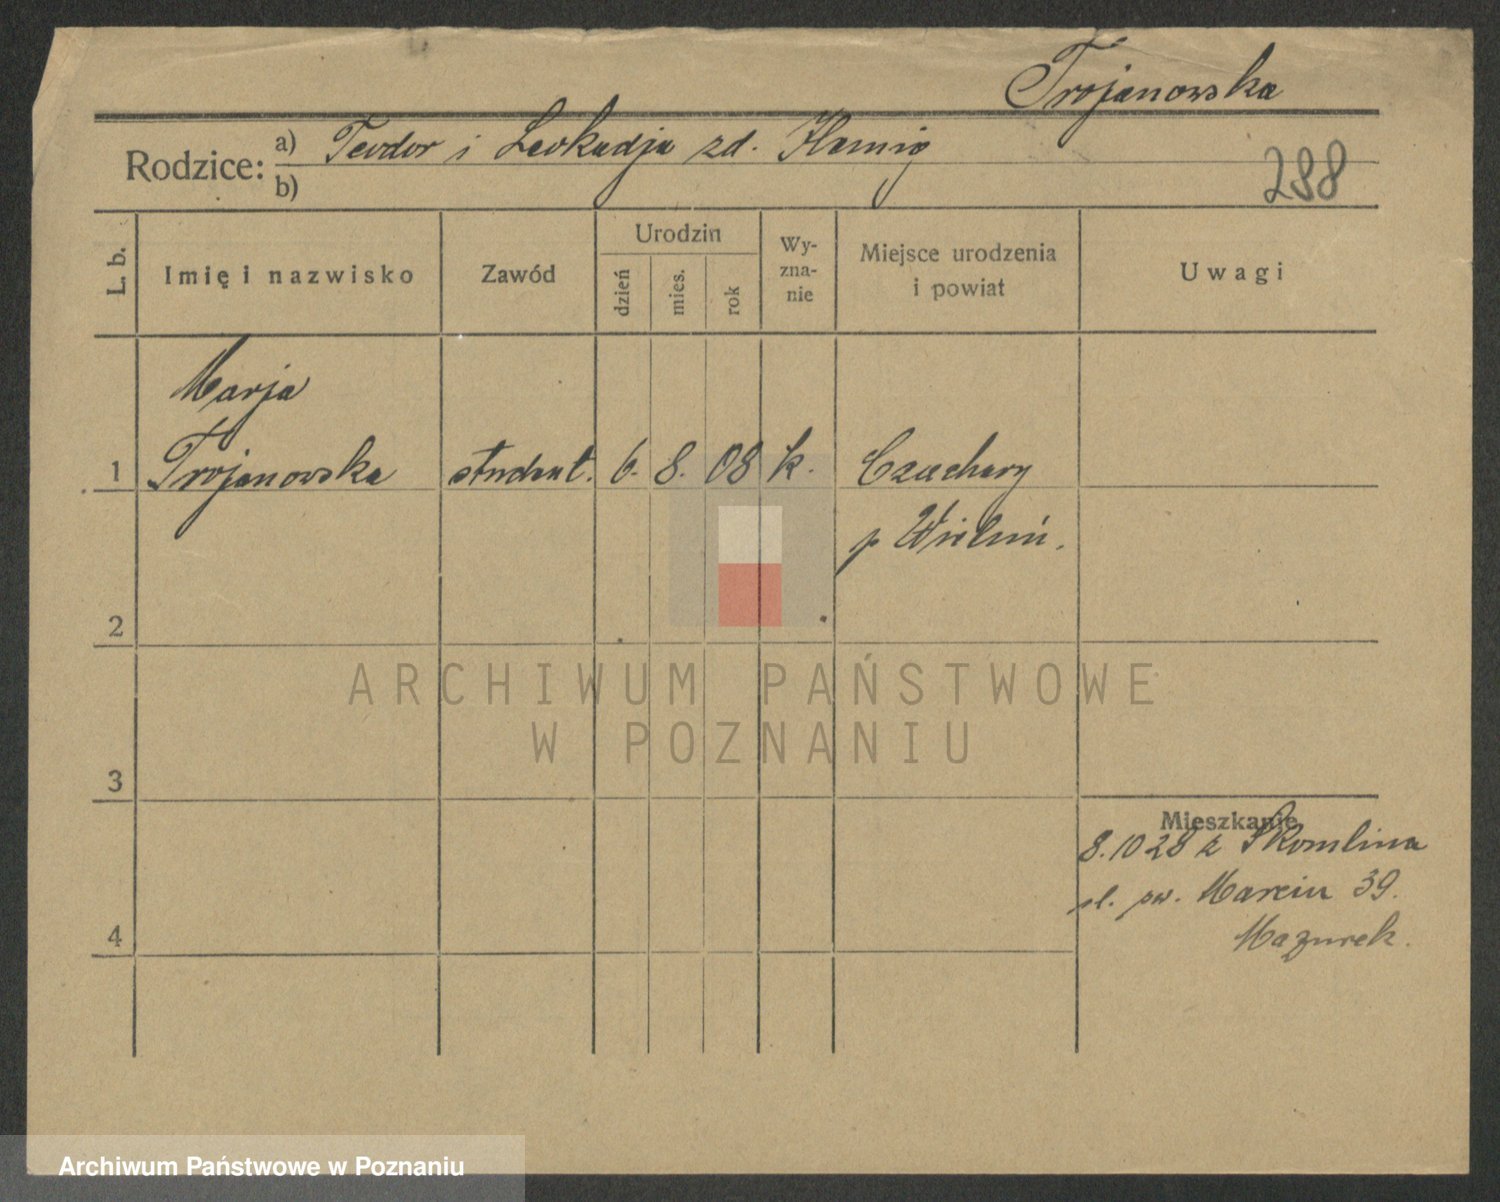 Trojanowska
Rodzice:
a) Teodor i Leokadja zd.
b)
288
L. b.
Imię i nazwisko
Zawód
Urodzin
dzień
mies.
rok
Wy-
zna-
nie
Miejsce urodzenia
i powiat
Uwagi
Marja
1 Trojanowska student. 6. 8. 08 k. Czachary
p Wieluń.
2
3
4
Mieszkanie
8.10 28 z Skomlina
Marcin 39.
Mazurek.
ARCHIWUM PAŃSTWOWE
W POZNANIU
Archiwum Państwowe w Poznaniu